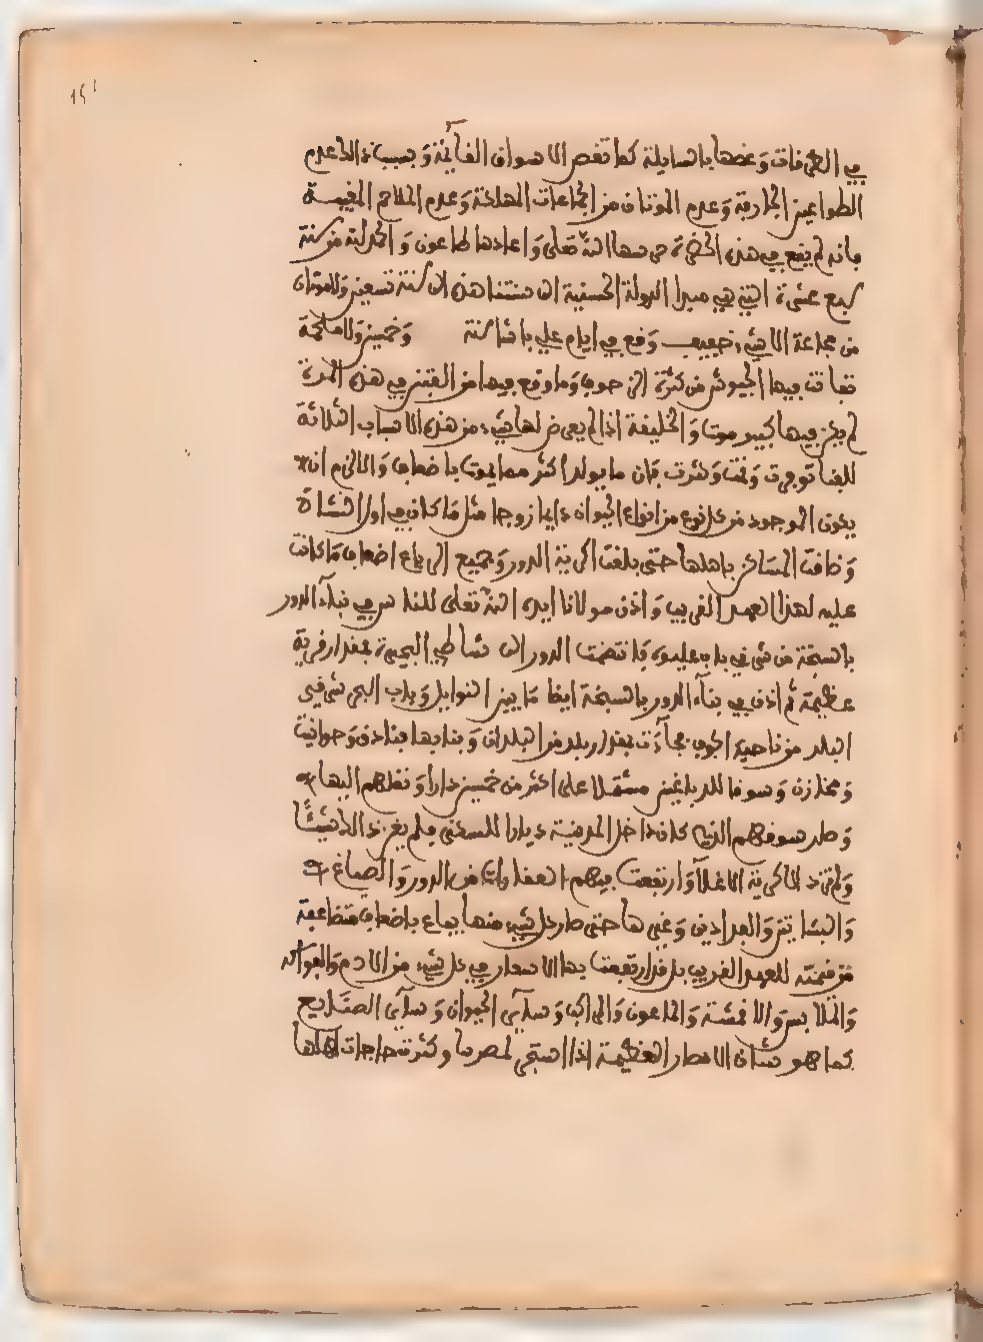 ١٥١
في الطرقات وغصها بالسابلة كما تغص الاسواق الفائجة وسبب ذالك عدم
الطواعين الجارفة وعدم الموتان من المجاعات المهلكة وعدم الملاحم المغيبة
فانه لم يقع في هذه الحضرة حرسها الله تعلى واعادها طاعون والحمد لله من سنة
سبع عشرة التي هي مبدا الدولة الحسنية الى سنتنا هذه الا سنة تسعين ولا موتان
من مجاعة الا شيء خفيف وقع في ايام علي باشا سنة وخمسين ولا ملحمة
تفانت فيها الجيوش من كثرة الزحوف وما وقع فيها من الفتن في هذه المدة
لم يكن فيها كبير موت والخليفة اذا لم يعرض لها شيء من هذه الاسباب الثلاثة
للفنا توفرت ونمت وكثرت فان ما يولد اكثر مما يموت باضعاف والا لزم ان لا
يكون الموجود من كل نوع من انواع الحيوان دايما زوجا مثل ما كان في اول النشأة
وضاقت المساكن باهلها حتى بلغت اكرية الدور وجميع الرباع اضعاف ما كانت
عليه لهذا العهد القريب واذن مولانا ايده الله تعلى للناس في بناء الدور
بالسبخة من شرقي باب عليوه فانتظمت الدور الى شاطي البحيرة بمقدار قرية
عظيمة ثم اذن في بناء الدور بالسبخة ايضا ما بين النوايل وباب البحر شرقي
البلد من ناحية الجوف فجاءت بمقدار بلد من البلدان وبنا بها فنادق وحوانيت
ومخازن وسوقا للدباغين مشتملا على اكثر من خمسين دارا ونقلهم اليها
وصار سوقهم الذي كان داخل المدينة ديارا للسكنى فلم يغن ذالك شيئا
ولم تزد الاكرية الا غلاء وارتفعت قيم العقارات من الدور والصباغ
والبساتين والفدادين وغيرها حتى صار كل شيء منها يباع باضعاف متضاعفة
من قيمته للعهد القريب بل قد ارتفعت بها الاسعار في كل شيء من الادم والفواكه
والملابس والاقمشة والماعون والمراكب وسائر الحيوان وسائر الصنايع
كما هو شان الامصار العظيمة اذا استبحر عمرانها وكثرت حاجات اهلها